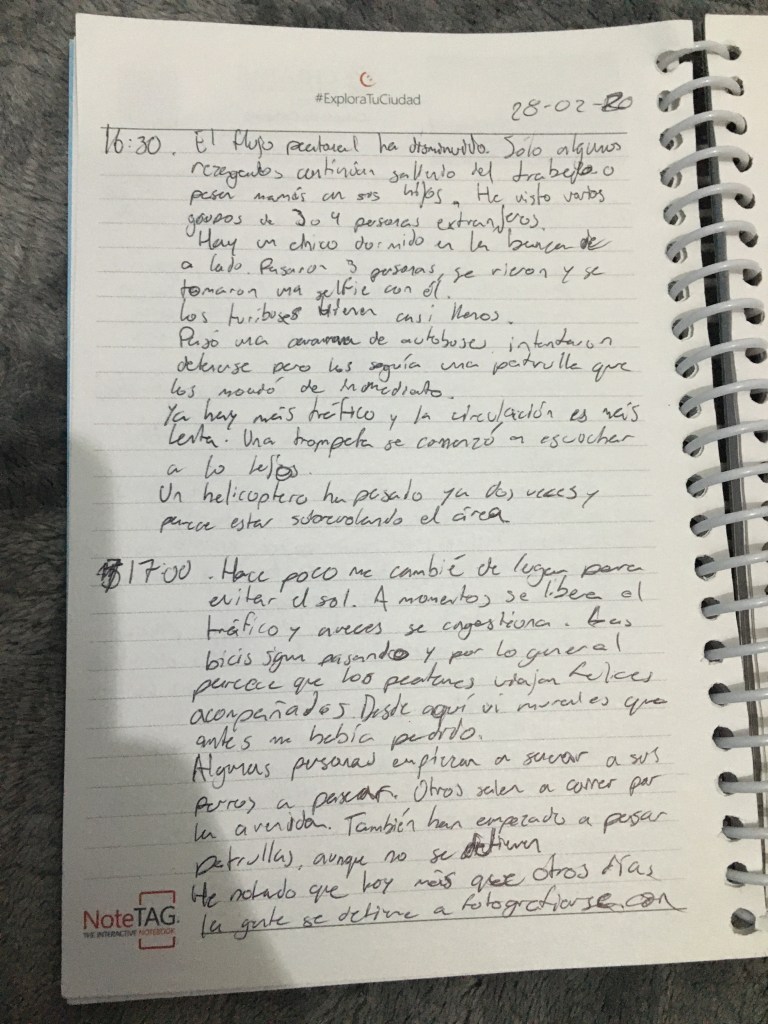 #ExploraTuCiudad
28-02-20
16:30. El flujo peatonal ha disminuido. Sólo algunos
rezagados continúan saliendo del trabajo o
pasan mamás con sus hijos. He visto varios
grupos de 3 o 4 personas extranjeros.
Hay un chico dormido en la banca de
a lado. Pasaron 3 personas, se rieron y se
tomaron una selfie con él.
Los turibuses vienen casi llenos.
Pasó una caravana de autobuses intentaron
detenerse pero los seguía una patrulla que
los movió de inmediato.
Ya hay más tráfico y la circulación es más
lenta. Una trompeta se comenzó a escuchar
a lo lejos.
Un helicoptero ha pasado ya dos veces y
parece estar sobrevolando el área
17:00. Hace poco me cambié de lugar para
evitar el sol. A momentos se libera el
tráfico y aveces se congestiona. Las
bicis sigun pasando y por lo general
parece que los peatones viajan felices
acompañados. Desde aquí vi murales que
antes me había perdido.
Algunas personas empiezan a sacar a sus
perros a pasear. Otros salen a correr por
la avenida. También han empezado a pasar
patrullas, aunque no se detienen
He notado que hoy más que otros días
la gente se detiene a fotografiarse con
NoteTAG.
THE INTERACTIVE NOTEBOOK